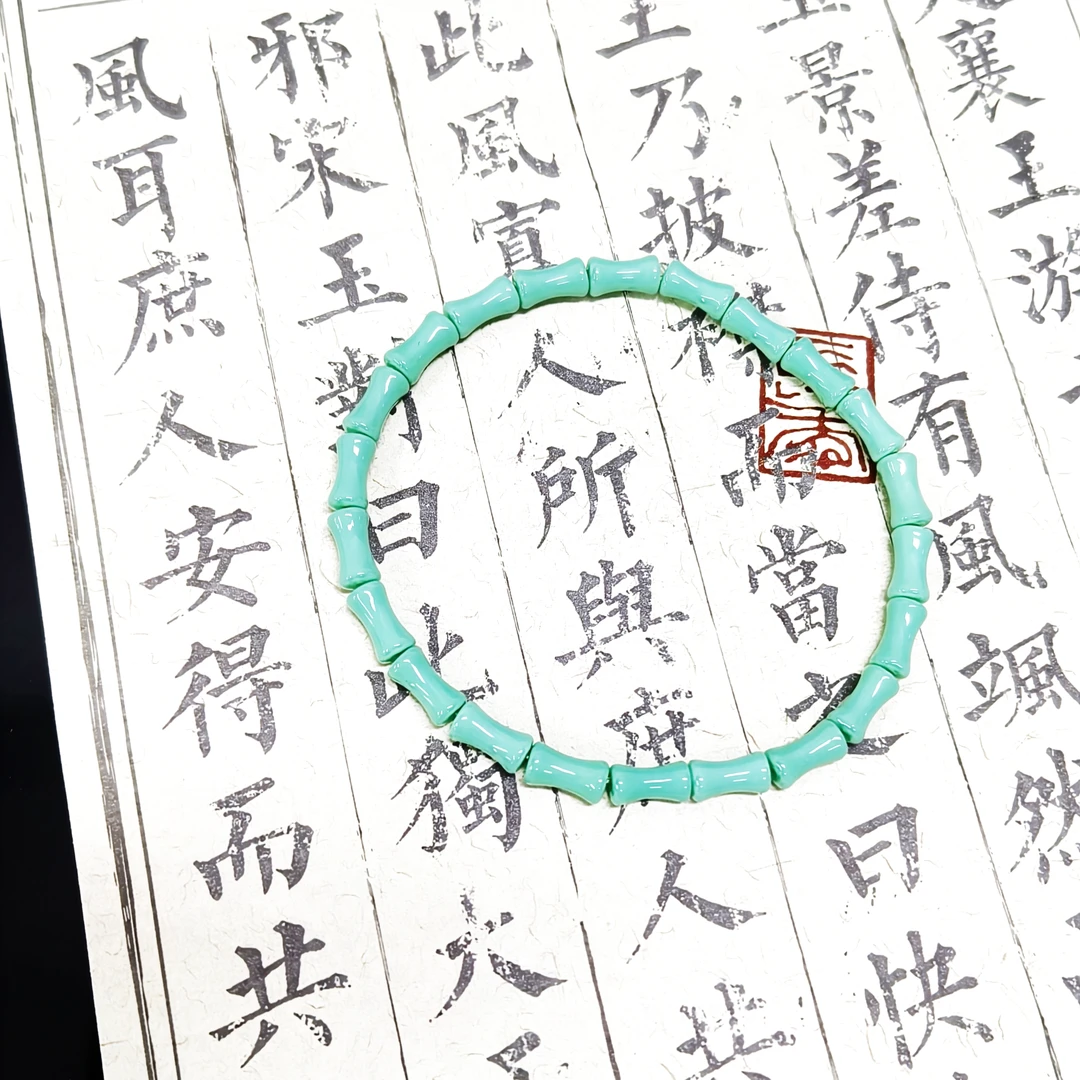 襄王游
玉景差侍有風颯然
王乃披襟而當之曰快
此風寡人所與庶人共
邪宋玉對曰此獨大
風耳庶人安得而共